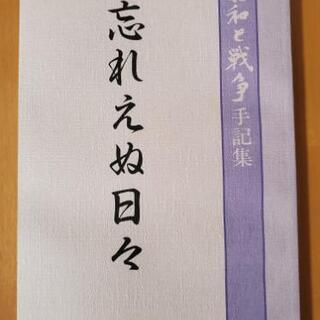 昭和と戦争 手記集
忘れえぬ日々